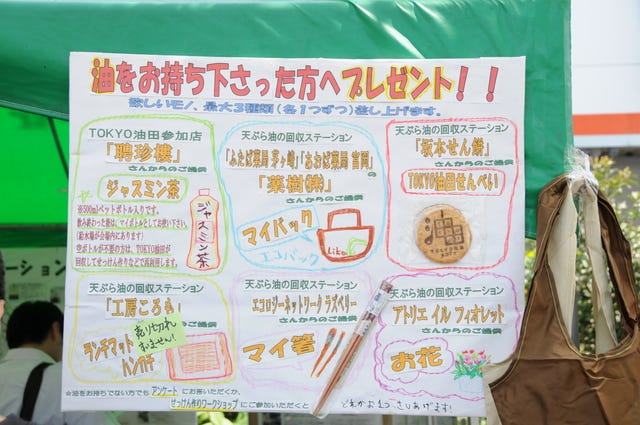 油をお持ち下さった方へプレゼント!!
欲しいモノ、最大3種類(各1つずつ)差し上げます。
TOKYO油田参加店
「聘珍樓」
さんからのご提供
ジャスミン茶
※500mlペットボトル入りです。
飲み終わった後は、マイボトルとしてお使い下さい。
(給水場が会場内にあります)
空ボトルが不要の方は、TOKYO油田が
回収してせっけん作りなどで再利用します。
ジャスミン茶
天ぷら油の回収ステーション
の
「薬樹㈱」
さんからのご提供
マイバック
エコバック
天ぷら油の回収ステーション
「坂本せん餅」
さんからのご提供
TOKYO油田せんべい
天ぷら油の回収ステーション
「工房ころも」
のご提供
ランチマット
ハンカチ
売り切れ
ません!
天ぷら油の回収ステーション
エコロジーネットワーク ラズベリー
さんからのご提供
マイ箸
天ぷら油の回収ステーション
アトリエ イル フィオレット
さんからのご提供
お花
☆油をお持ちでない方でも アンケート にお答えいただくか、
せっけん作りワークショップ にご参加いただくと
どれかお1つ、さしあげます!
ステーション